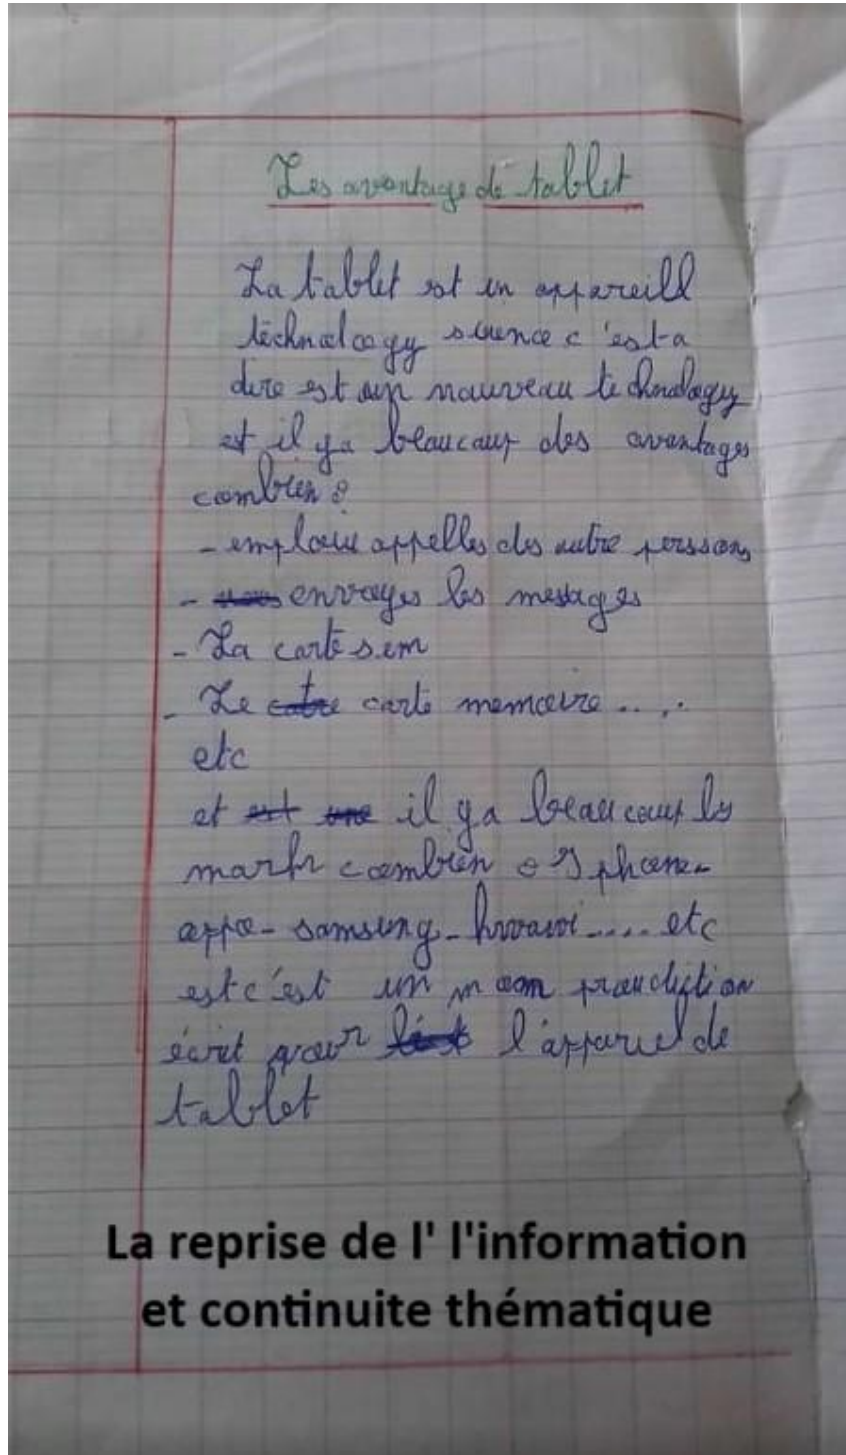 Les avantage de tablet
La tablet est un appareill
technologgy sience c'est a
dire est un nouveau technology
et il ya beaucoup des avantages
combien :
- emploie appelles des autre perssons
- envoyes les messages
- La carte sim
- Le carte memoire ....
etc
et il ya beaucoup les
combien : I phone -
oppo - samsung - hwawi ..... etc
est c'est un mon production
écrit pour l'appariel de
tablet
La reprise de l' l'information
et continuite thématique